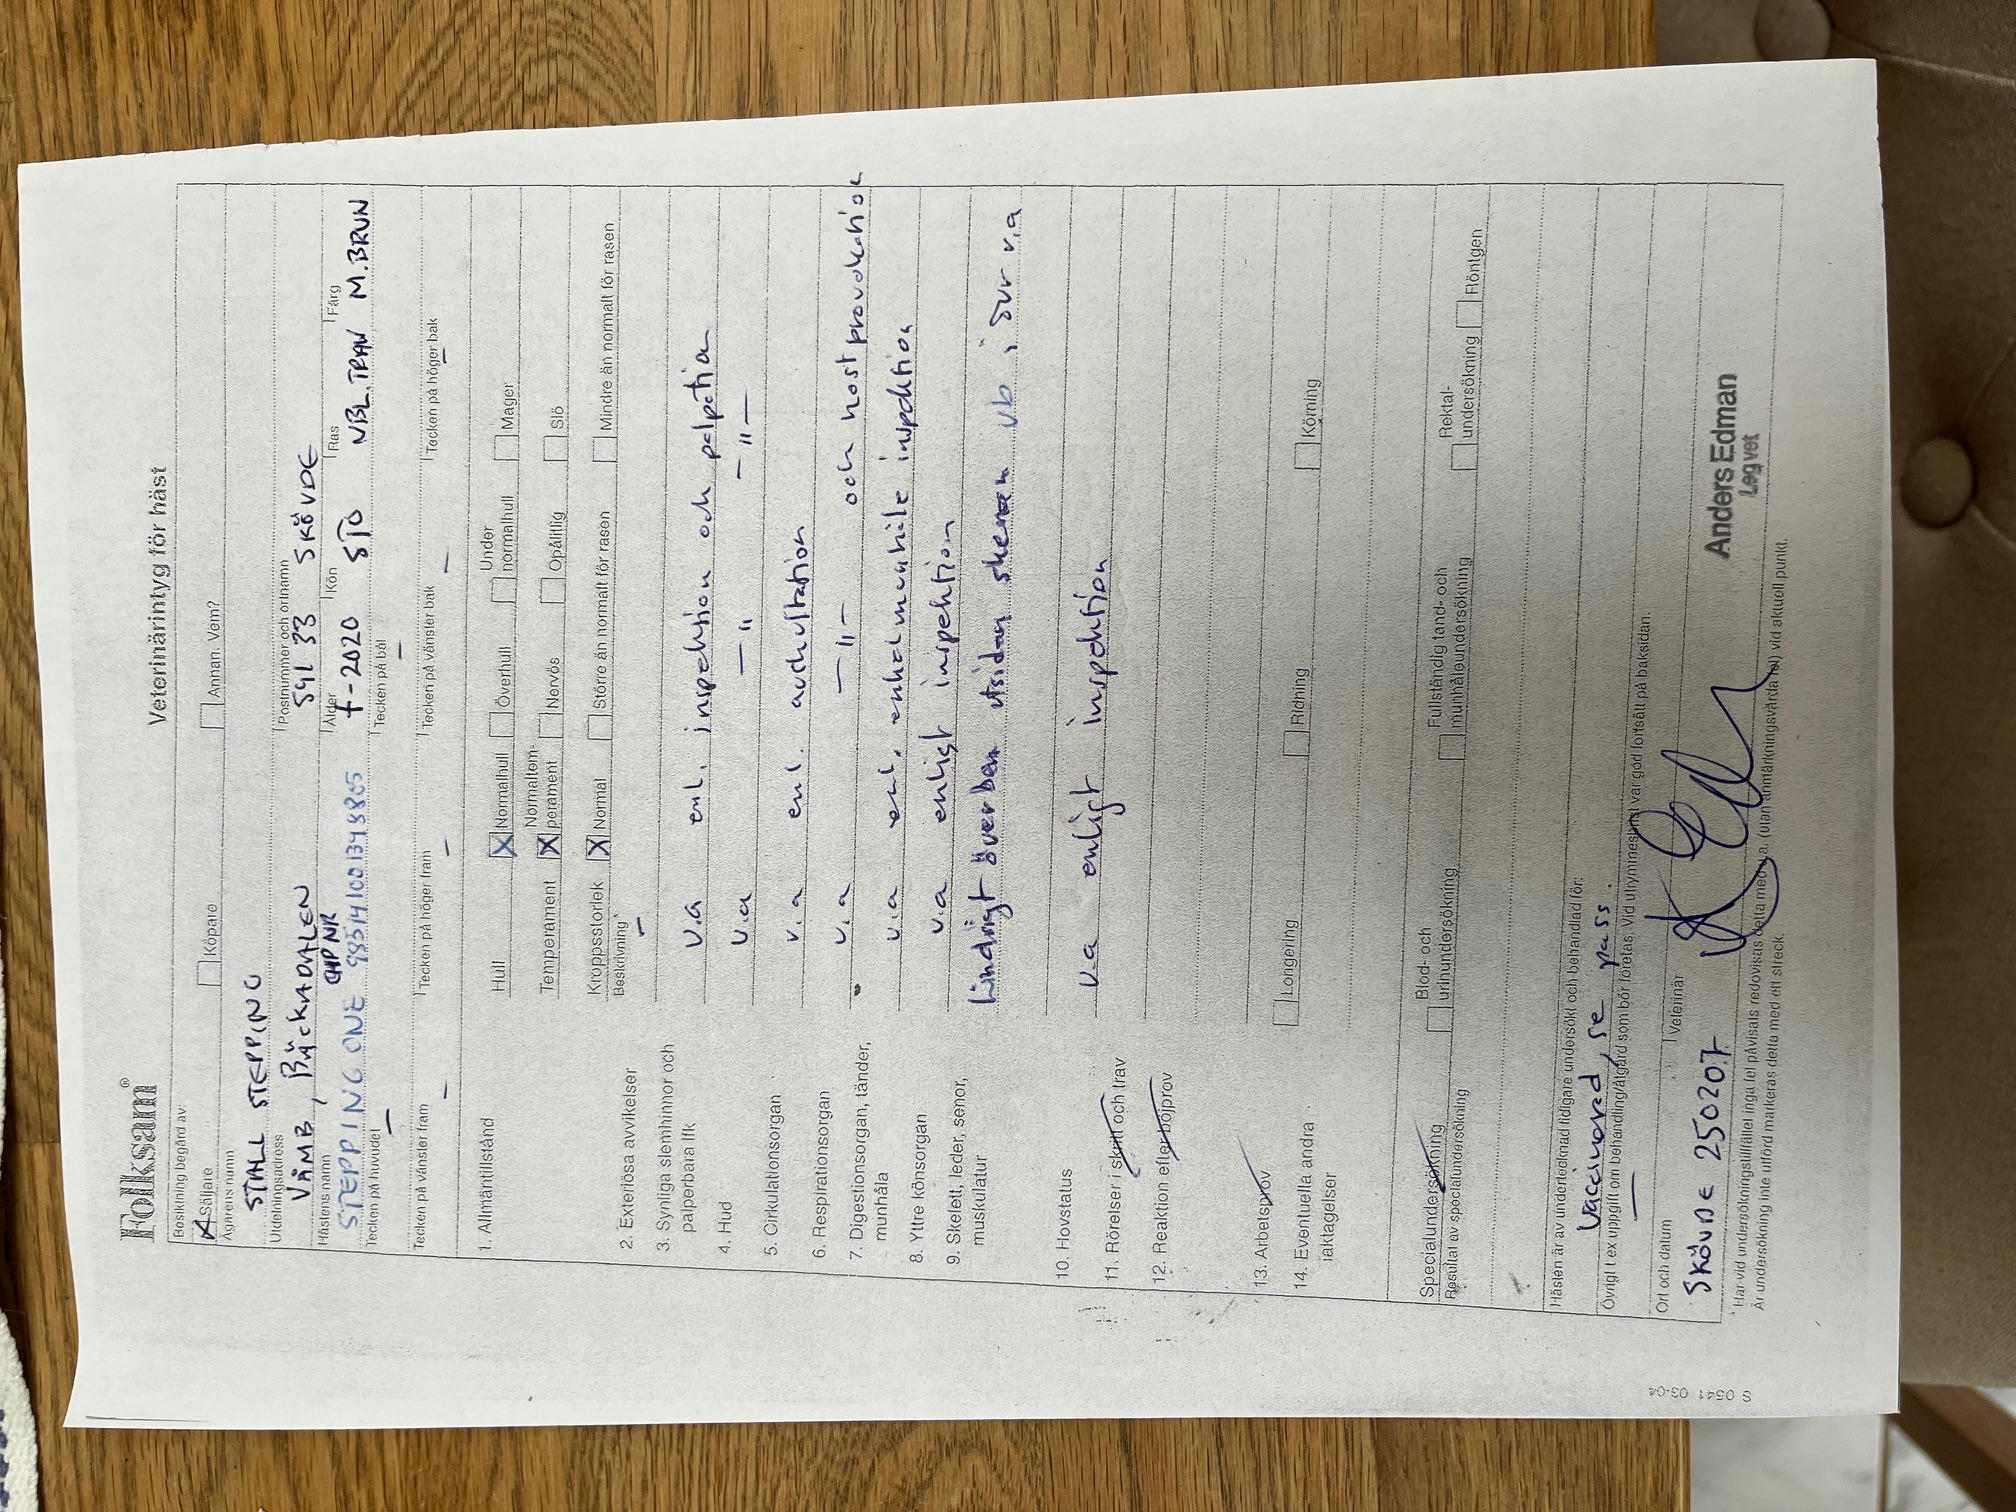 Folksam®
Veterinärintyg för häst
Besiktning begärd av:
X Säljare
Köpare
Annan. Vem?
Ägarens namn
STALL STEPPING
Utdelningsadress
Postnummer och ortnamn
VÄMB, BÄCKADALEN
541 33 SKÖVDE
Hästens namn
Ålder
Kön
Ras
Färg
STEPPING ONE CHIPNR
f-2020 STO VBL.TRAV M.BRUN
Tecken på huvudet
Tecken på bål
—
—
Tecken på vänster fram
Tecken på höger fram
Tecken på vänster bak
Tecken på höger bak
— — — —
1. Allmäntillstånd
Hull
X Normalhull
Överhull
Under normalhull
Mager
Temperament
X Normaltemperament
Nervös
Opålitlig
Slö
Kroppsstorlek
X Normal
Större än normalt för rasen
Mindre än normalt för rasen
2. Exteriösa avvikelser
Beskrivning*
—
3. Synliga slemhinnor och
palperbara lfk
v.a enl. inspektion och palpation
4. Hud
v.a —"— —"—
5. Cirkulationsorgan
v.a enl. auskultation
6. Respirationsorgan
v.a —"— och hostprovokation
7. Digestionsorgan, tänder,
munhåla
v.a enl. inspektion
8. Yttre könsorgan
v.a enligt inspektion
9. Skelett, leder, senor,
muskulatur
Lindrigt överben utsidan skenan vb i övr v.a
10. Hovstatus
v.a enligt inspektion
11. Rörelser i skritt och trav
12. Reaktion efter böjprov
13. Arbetsprov
14. Eventuella andra
iakttagelser
Longering
Ridning
Körning
Specialundersökning
Resultat av specialundersökning
Blod- och
urinundersökning
Fullständig tand- och
munhåleundersökning
Rektal-
undersökning
Röntgen
Hästen är av undertecknad tidigare undersökt och behandlad för:
Vaccinerad, se pass.
Övrigt t ex uppgift om behandling/åtgärd som bör företas. Vid utrymmesbrist var god fortsätt på baksidan.
—
Ort och datum
Veterinär
SKÖVDE 250207
Anders Edman
Leg vet
*Har vid undersökningstillfället inga fel påvisats redovisas detta med v.a. (utan anmärkningsvärda fel) vid aktuell punkt.
Är undersökning inte utförd markeras detta med ett streck.
S 0541 03-04